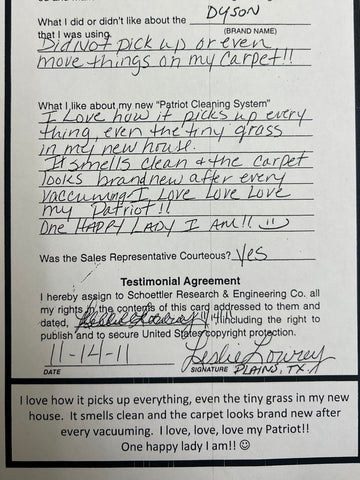 What I did or didn't like about the DYSON
that I was using. (BRAND NAME)
Did Not pick up or even
move things on my carpet!!
What I like about my new "Patriot Cleaning System"
I Love how it picks up every
thing, even the tiny grass
in my new house.
It smells clean & the carpet
looks brand new after every
vaccuming I Love Love Love
my Patriot!!
One HAPPY LADY I AM!! :)
Was the Sales Representative Courteous? Yes
Testimonial Agreement
I hereby assign to Schoettler Research & Engineering Co. all
my rights in the contents of this card addressed to them and
dated, including the right to
publish and to secure United States copyright protection.
11-14-11 Leslie Lowrey
DATE SIGNATURE PLAINS, TX
I love how it picks up everything, even the tiny grass in my new
house. It smells clean and the carpet looks brand new after
every vacuuming. I love, love, love my Patriot!!
One happy lady I am!! ☺